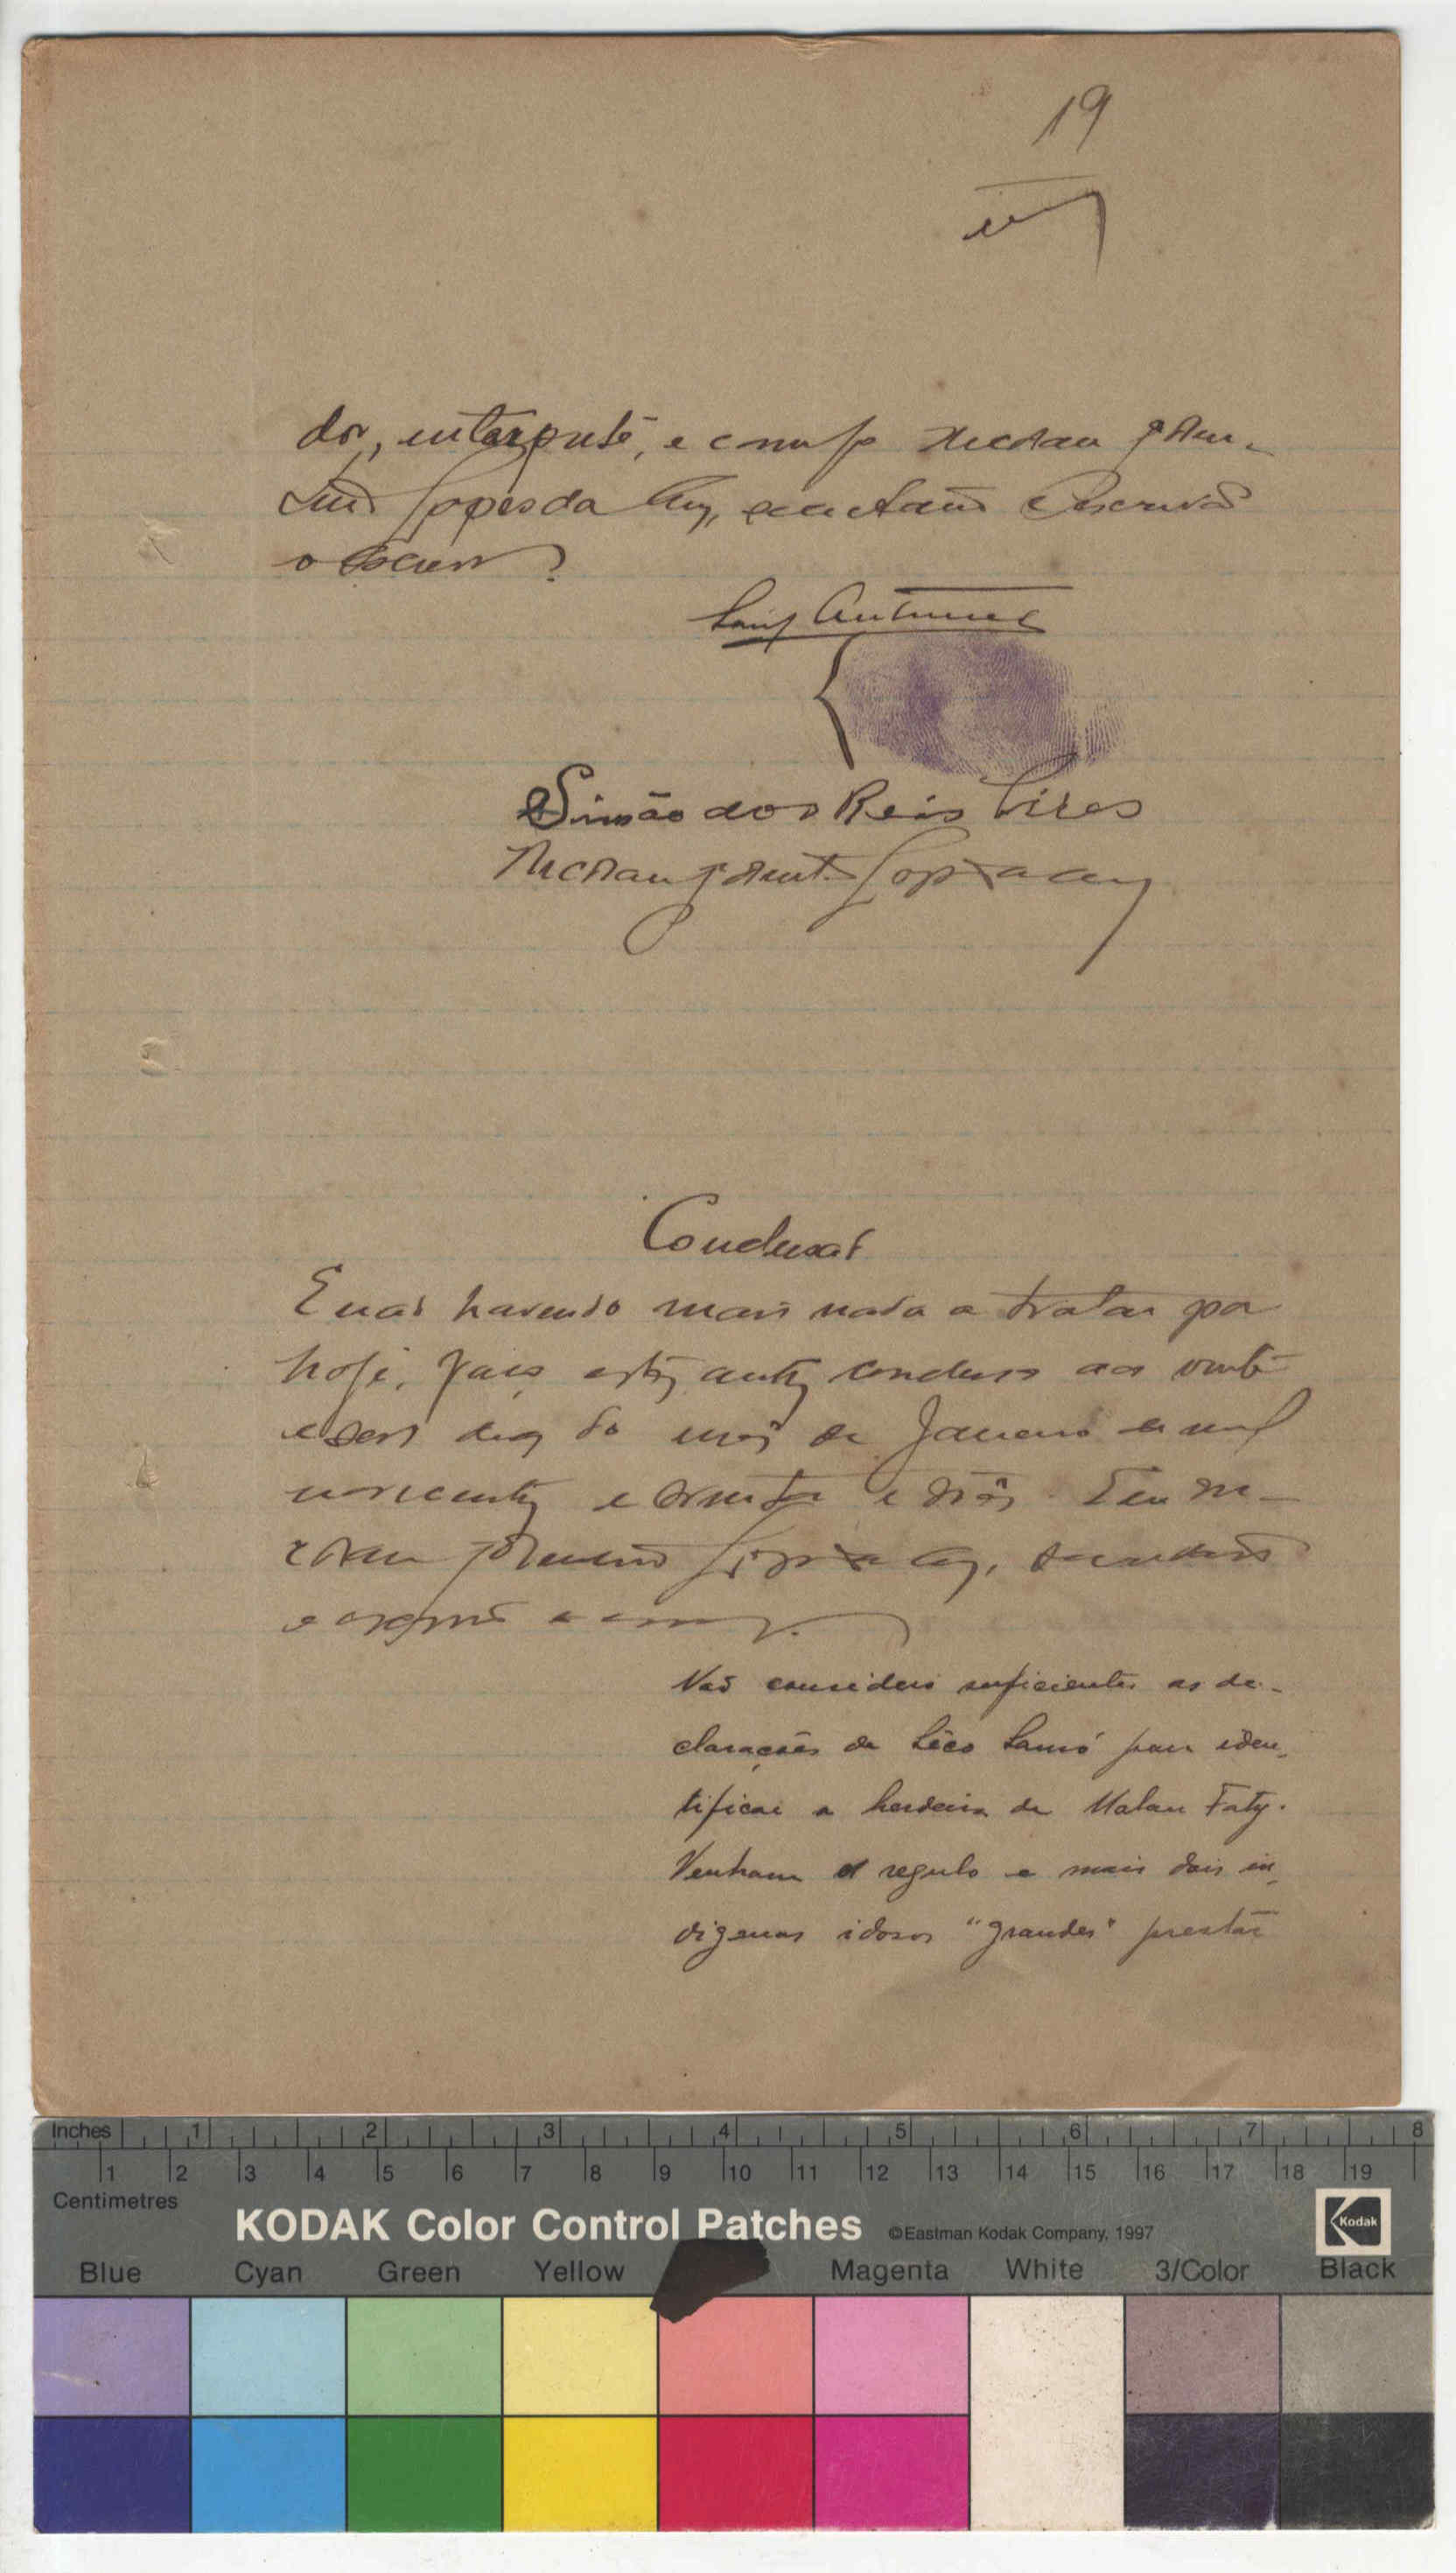 19
dor, interpute, e comigo
Lopes da Cruz, secretario Escrivão
o escrevi
Luiz Antunes
Simão dos Reis Pires
Concluzaõ
E naõ havendo mais nada a tratar por
hoje, faço estes autos conclusos aos vinte
e seis dias do mês de Janeiro de mil
novecentos e trinta e três. Eu
Não considero suficientes as de-
clarações de Léco Samó para iden-
tificar a herdeira de Malan Faty.
Venham o regulo e mais dois in-
digenas idosos "grandes" prestar
Inches 1 2 3 4 5 6 7 8
1 2 3 4 5 6 7 8 9 10 11 12 13 14 15 16 17 18 19
Centimetres
KODAK Color Control Patches ©Eastman Kodak Company, 1997 Kodak
Blue Cyan Green Yellow Magenta White 3/Color Black